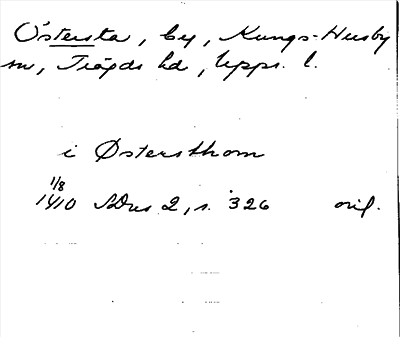 Östersta, by, Kungs-Husby
sn, Trögds hd, Upps. l.
i Østersthom
1/8
1410 SDns 2, s. 326 orig.